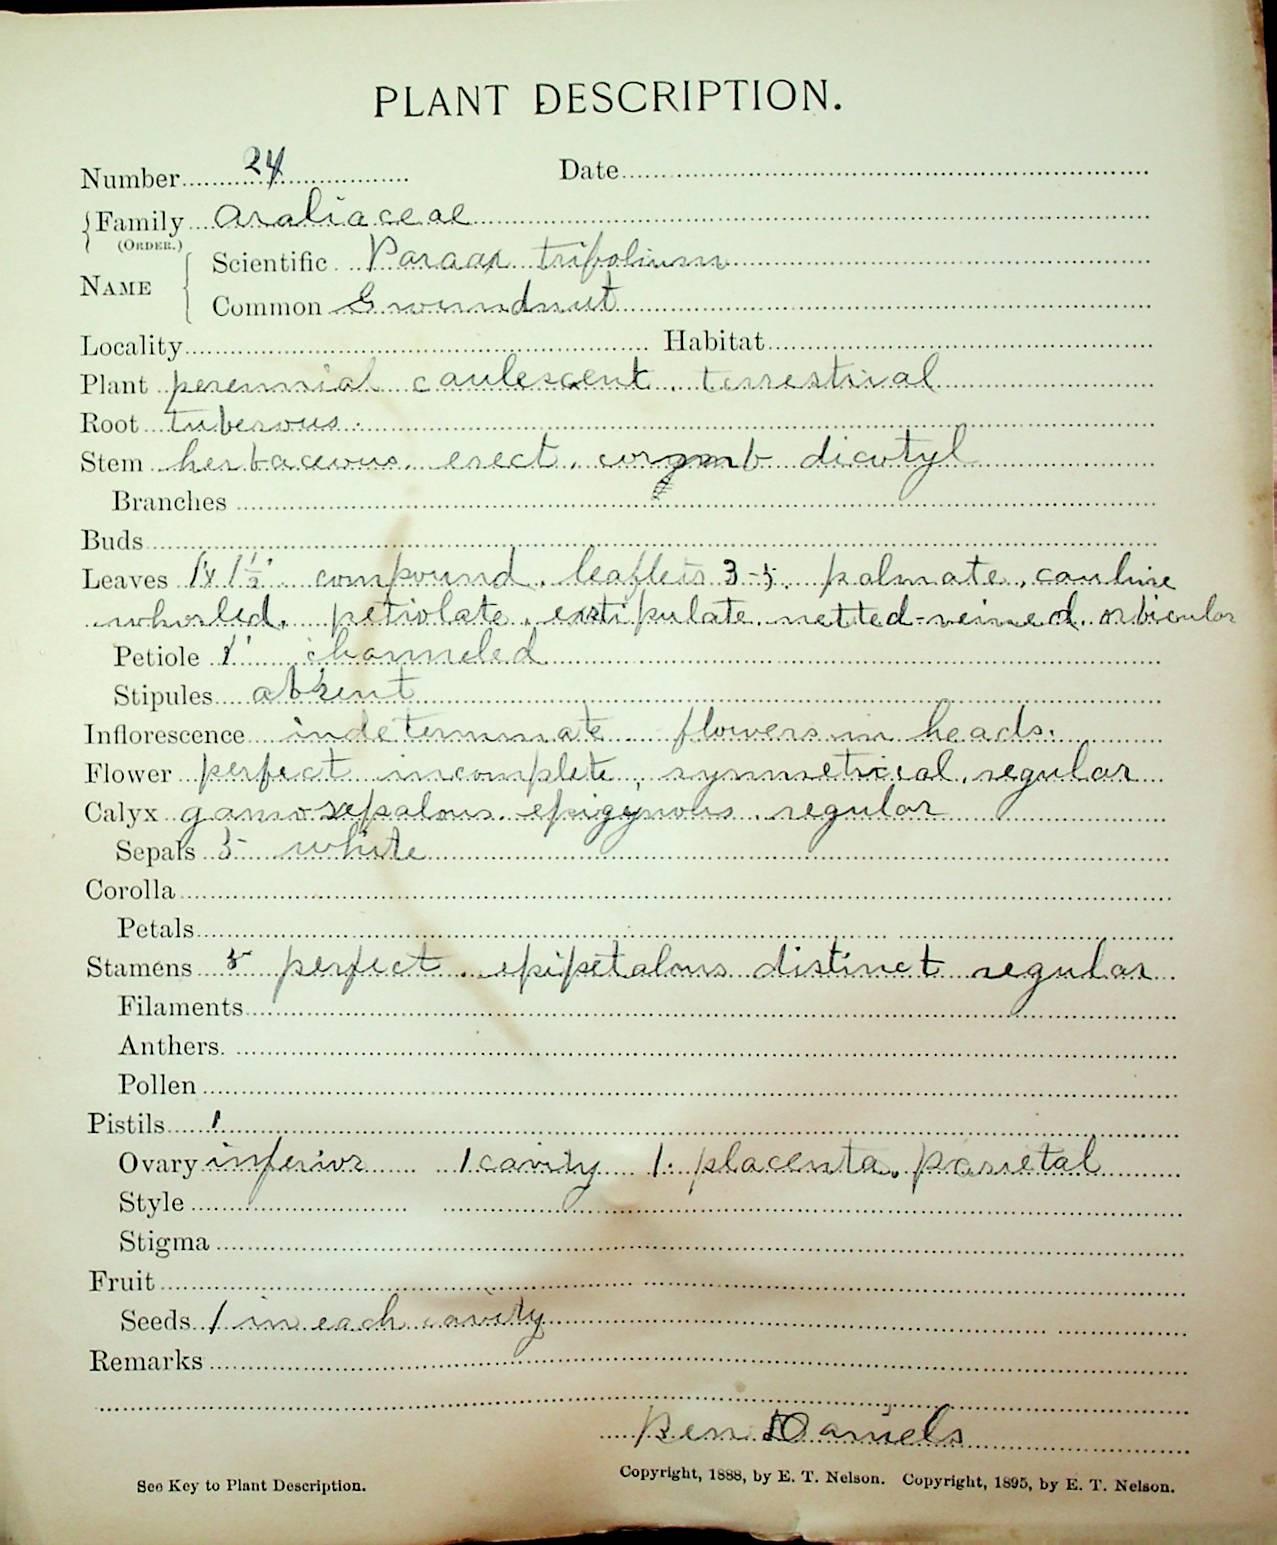 PLANT DESCRIPTION.
Number 24 Date
Family Araliaceae
(ORDER.)
NAME
Scientific trifolium
Common Groundnut
Locality Habitat
Plant perennial caulescent, terrestrial
Root tuberous.
Stem herbaceous, erect, dicotyl
Branches
Buds
Leaves 1 x 1½" compound, leaflets 3-5, palmate, cauline
whorled, petiolate, exstipulate, netted-veined, orbicular
Petiole 1" channeled
Stipules absent
Inflorescence indeterminate flowers in heads.
Flower perfect incomplete, symmetrical, regular
Calyx gamosepalous, epigynous, regular
Sepals 5 white
Corolla
Petals
Stamens 5 perfect, epipetalous distinct regular
Filaments
Anthers.
Pollen
Pistils 1
Ovary inferior 1 cavity 1. placenta, parietal
Style
Stigma
Fruit
Seeds 1 in each cavity
Remarks
Ben Daniels
See Key to Plant Description. Copyright, 1888, by E. T. Nelson. Copyright, 1895, by E. T. Nelson.